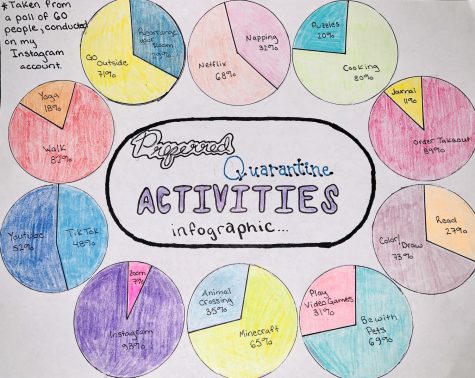 *Taken from
a poll of 60
people, conducted
on my
Instagram
account.
Rearrange
your
Room
29%
GO
Outside
71%
Napping
32%
Netflix
68%
Puzzles
20%
Cooking
80%
Yoga
18%
Walk
82%
Journal
11%
Order Takeout
89%
Preferred
Quarantine
ACTIVITIES
infographic...
Youtube
52%
TikTok
48%
Read
27%
Color/Draw
73%
Zoom
7%
Instagram
93%
Animal
Crossing
35%
Minecraft
65%
Play
Video Games
31%
Be with
Pets
69%